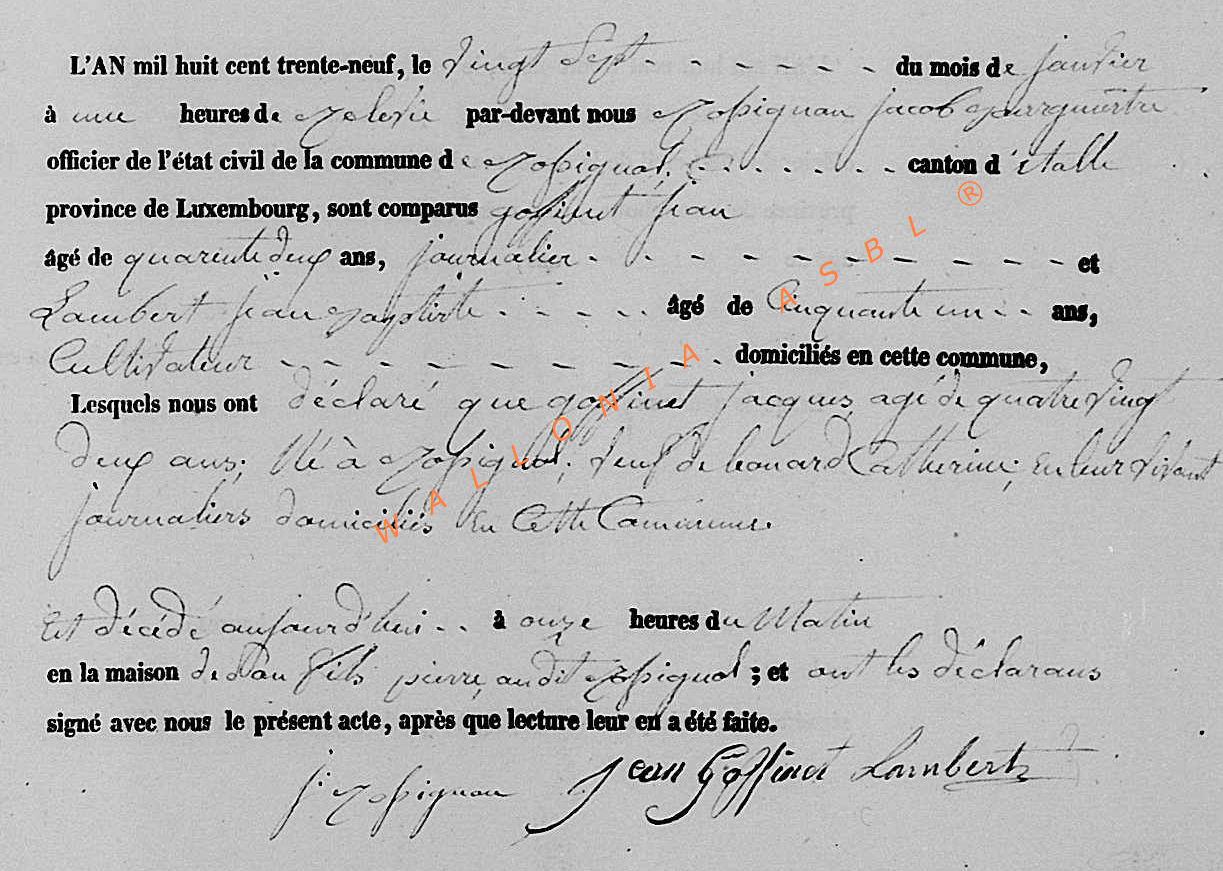 L'AN mil huit cent trente-neuf, le vingt Sept du mois de janvier
à une heures de relevée par-devant nous Rossignon jacob Bourguemestre
officier de l'état civil de la commune de Rossignol canton d'étalle
province de Luxembourg, sont comparus goffinet jean
âgé de quarente deux ans, journalier et
Lambert jean Baptiste âgé de Cinquante un ans,
Cultivateur domiciliés en cette commune,
Lesquels nous ont déclaré que goffinet jacques agé de quatre vingt
deux ans; Né à Rossignol; veuf de Catherine; En leur vivant
journaliers domiciliés En Cette Commune.
Est décédé aujourd'hui à onze heures du Matin
en la maison de Son fils pierre, audit Rossignol ; et ont les déclarans
signé avec nous le présent acte, après que lecture leur en a été faite.
j. Rossignon Jean Goffinet Lambert
WALLONIA ASBL ®